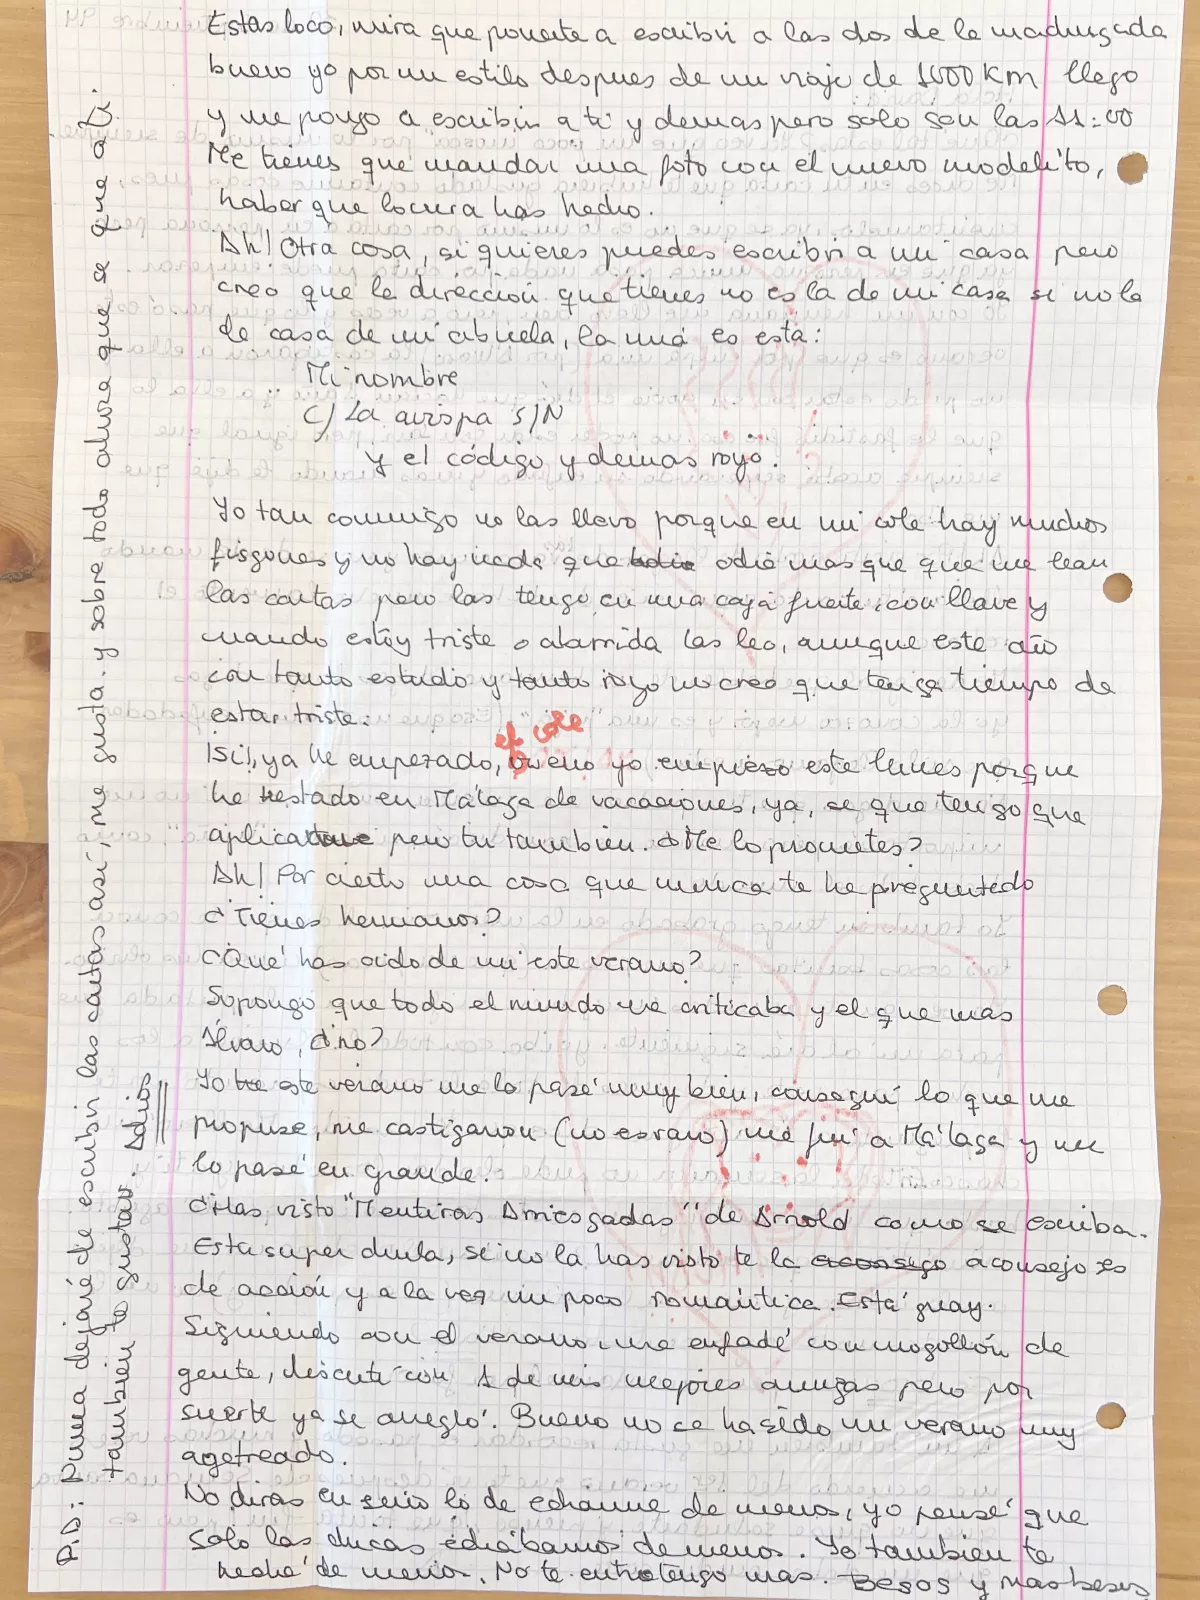 Estas loco, mira que ponerte a escribir a las dos de la madrugada
bueno yo por un estilo despues de un viaje de 1000 Km llego
y me pongo a escribir a ti y demas pero solo son las 11:00
Me tienes que mandar una foto con el nuevo modelito,
haber que locura has hecho.
Ah! Otra cosa, si quieres puedes escribir a mi casa pero
creo que la dirección que tienes no es la de mi casa si no la
de casa de mi abuela, la mia es esta:
Mi nombre
C/ La avispa S/N
y el código y demas royo.
Yo tan conmigo no las llevo porque en mi cole hay muchos
fisgones y no hay nada que odie mas que que me lean
las cartas pero las tengo en una caja fuerte, con llave y
cuando estoy triste o aburrida las leo, aunque este año
con tanto estudio y tanto royo no creo que tenga tiempo de
estar triste.
el cole
¡Si!, ya he empezado, bueno yo empiezo este lunes porque
he estado en Málaga de vacaciones, ya, se que tengo que
aplicarme pero tu tambien. ¿Me lo prometes?
Ah! Por cierto una cosa que nunca te he preguntado
¿Tienes hermanos?
¿Qué has oido de mi este verano?
Supongo que todo el mundo me criticaba y el que mas
Álvaro, ¿no?
Yo este verano me lo pasé muy bien, conseguí lo que me
propuse, me castigaron (no es raro) me fui a Málaga y me
lo pasé en grande.
¿Has visto "Mentiras Arriesgadas" de Arnold como se escriba.
Esta super chula, si no la has visto te la aconsejo es
de acción y a la vez un poco romántica. Está guay.
Siguiendo con el verano, me enfadé con mogollón de
gente, discuti con 1 de mis mejores amigas pero por
suerte ya se arregló. Bueno no se ha sido un verano muy
agetreado.
No diras en serio lo de echarme de menos, yo pensé que
solo las chicas echábamos de menos. Yo tambien te
heché de menos. No te entretengo mas. Besos y mas besos
P.D: Nunca dejaré de escribir las cartas así, me gusta. y sobre todo ahora que se que a ti.
también te gustan. Adios